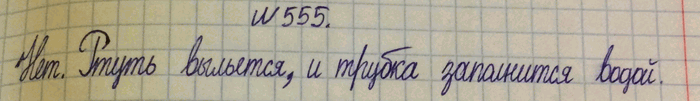 №555.
Нет. Ртуть выльется, и трубка заполнится водой.